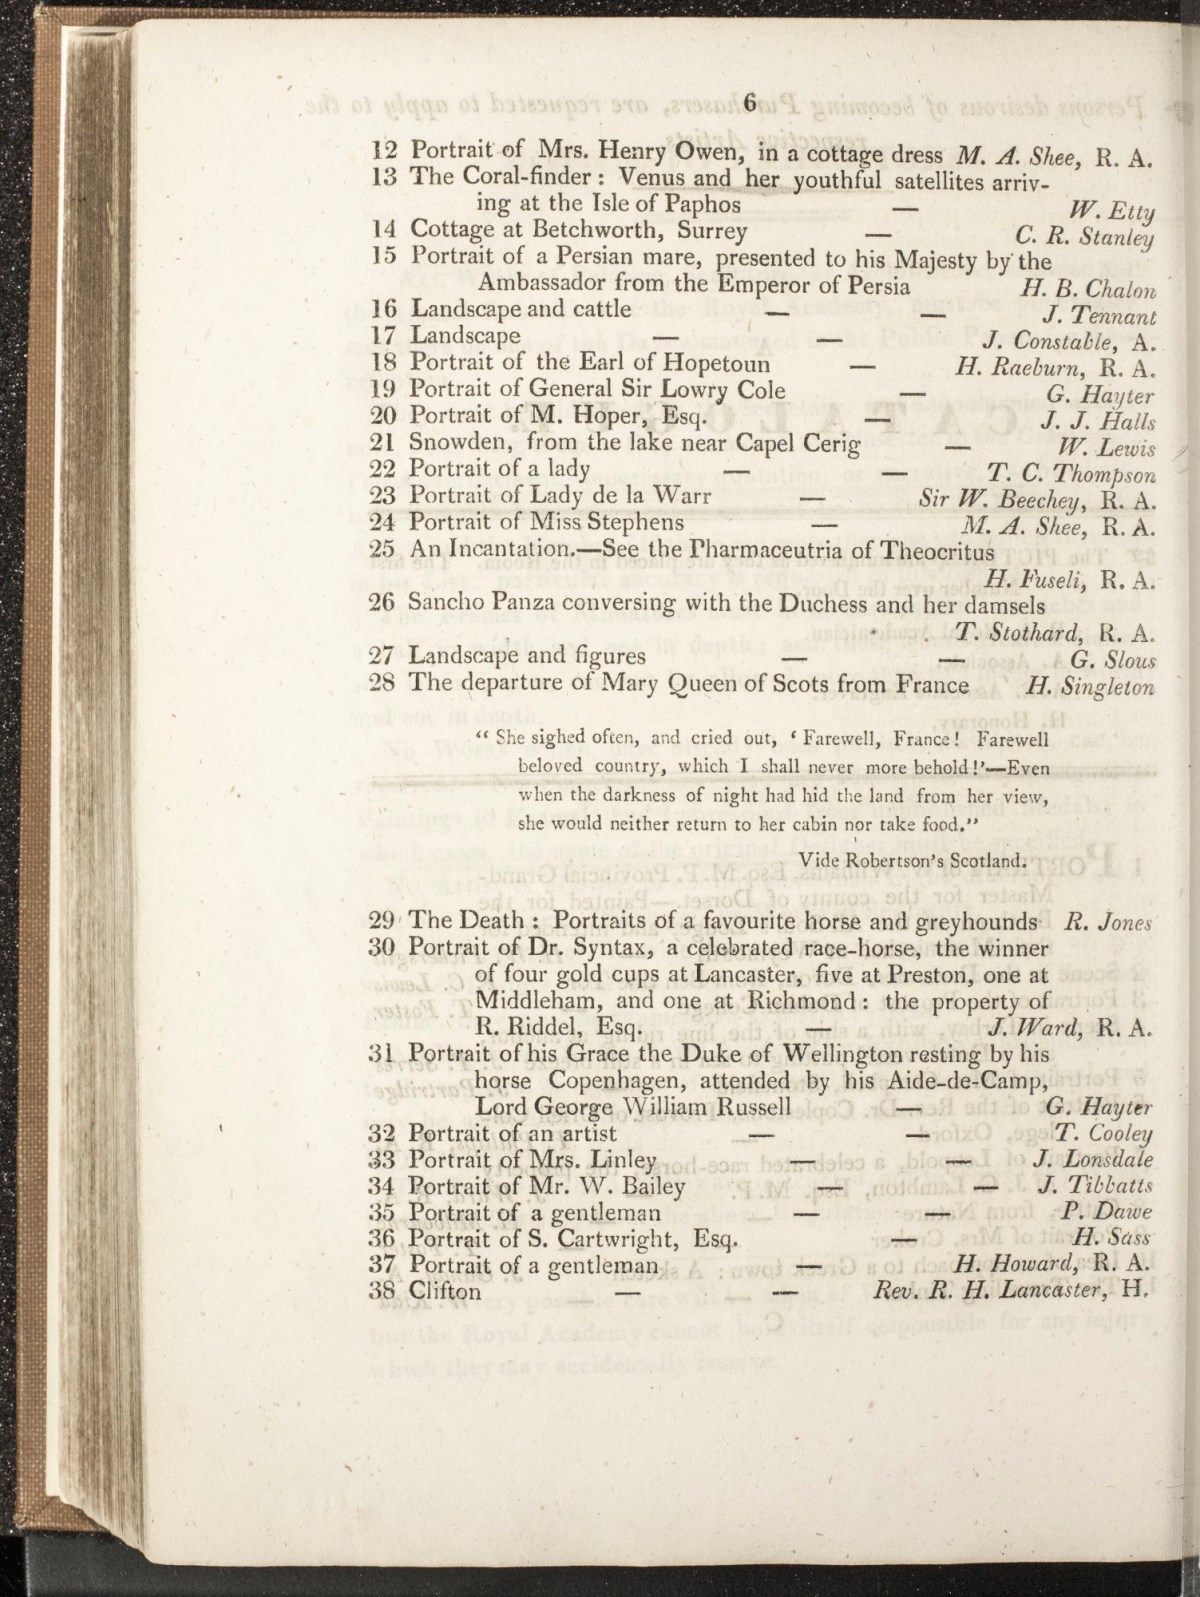 6
12 Portrait of Mrs. Henry Owen, in a cottage dress M. A. Shee, R. A.
13 The Coral-finder : Venus and her youthful satellites arriv-
ing at the Isle of Paphos — W. Etty
14 Cottage at Betchworth, Surrey — C. R. Stanley
15 Portrait of a Persian mare, presented to his Majesty by the
Ambassador from the Emperor of Persia H. B. Chalon
16 Landscape and cattle — — J. Tennant
17 Landscape — — J. Constable, A.
18 Portrait of the Earl of Hopetoun — H. Raeburn, R. A.
19 Portrait of General Sir Lowry Cole — G. Hayter
20 Portrait of M. Hoper, Esq. — J. J. Halls
21 Snowden, from the lake near Capel Cerig — W. Lewis
22 Portrait of a lady — — T. C. Thompson
23 Portrait of Lady de la Warr — Sir W. Beechey, R. A.
24 Portrait of Miss Stephens — M. A. Shee, R. A.
25 An Incantation.—See the Pharmaceutria of Theocritus
H. Fuseli, R. A.
26 Sancho Panza conversing with the Duchess and her damsels
T. Stothard, R. A.
27 Landscape and figures — — G. Slous
28 The departure of Mary Queen of Scots from France H. Singleton
“ She sighed often, and cried out, ‘ Farewell, France ! Farewell
beloved country, which I shall never more behold !’—Even
when the darkness of night had hid the land from her view,
she would neither return to her cabin nor take food.”
Vide Robertson's Scotland.
29 The Death : Portraits of a favourite horse and greyhounds R. Jones
30 Portrait of Dr. Syntax, a celebrated race-horse, the winner
of four gold cups at Lancaster, five at Preston, one at
Middleham, and one at Richmond : the property of
R. Riddel, Esq. — J. Ward, R. A.
31 Portrait of his Grace the Duke of Wellington resting by his
horse Copenhagen, attended by his Aide-de-Camp,
Lord George William Russell — G. Hayter
32 Portrait of an artist — — T. Cooley
33 Portrait of Mrs. Linley — — J. Lonsdale
34 Portrait of Mr. W. Bailey — — J. Tibbatts
35 Portrait of a gentleman — — P. Dawe
36 Portrait of S. Cartwright, Esq. — H. Sass
37 Portrait of a gentleman — H. Howard, R. A.
38 Clifton — — Rev. R. H. Lancaster, H.